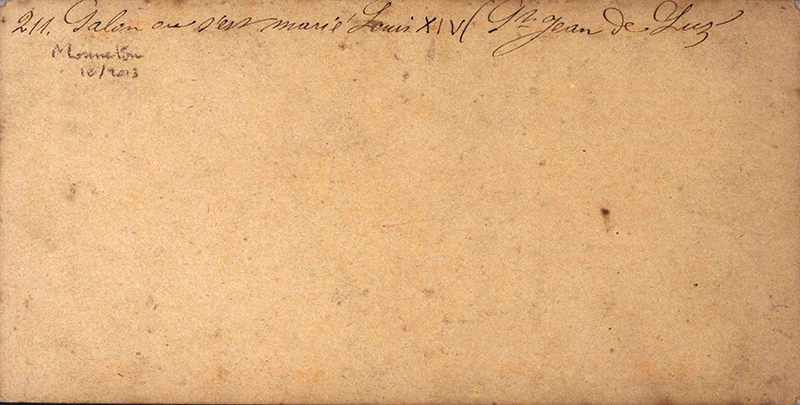 211. Salon ou s'est marié Louis XIV (St Jean de Luz
12/2013